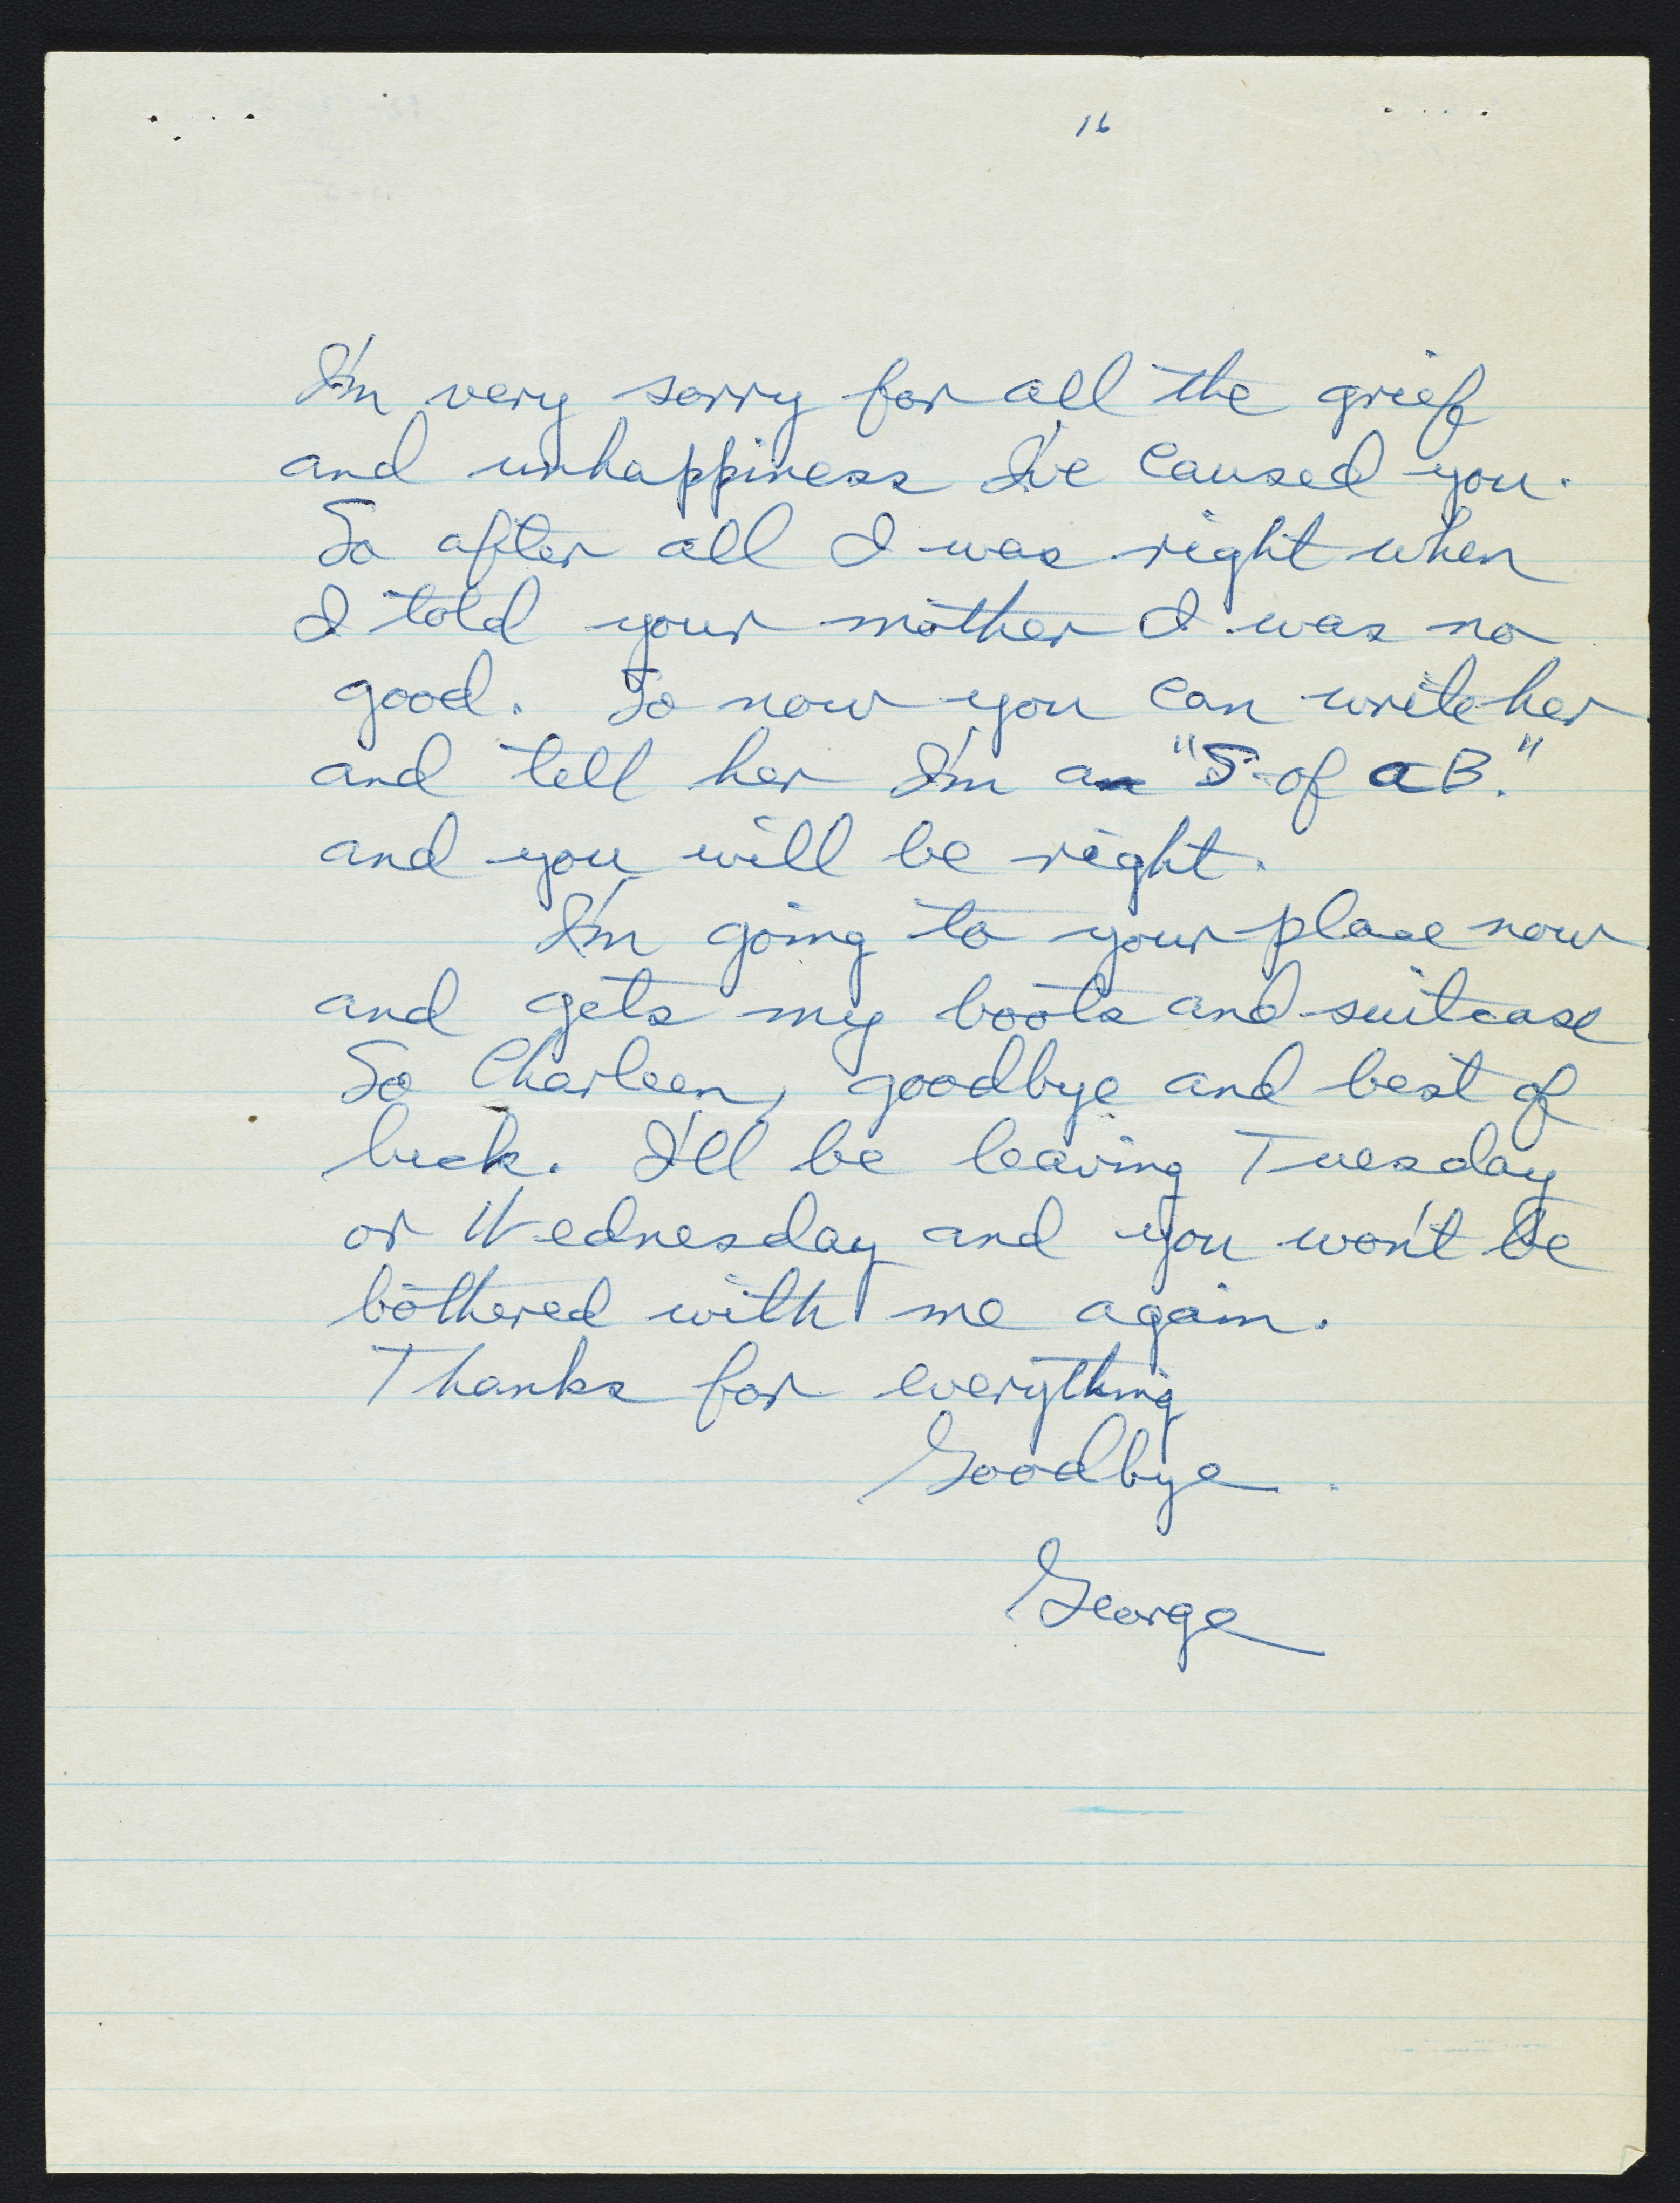 16
I'm very sorry for all the grief
and unhappiness I've caused you.
So after all I was right when
I told your mother I was no
good. So now you can write her
and tell her I'm a "S. of a B."
and you will be right.
I'm going to your place now
and gets my boots and suitcase
So Charleen, goodbye and best of
luck. I'll be leaving Tuesday
or Wednesday and you won't be
bothered with me again.
Thanks for everything
Goodbye.
George